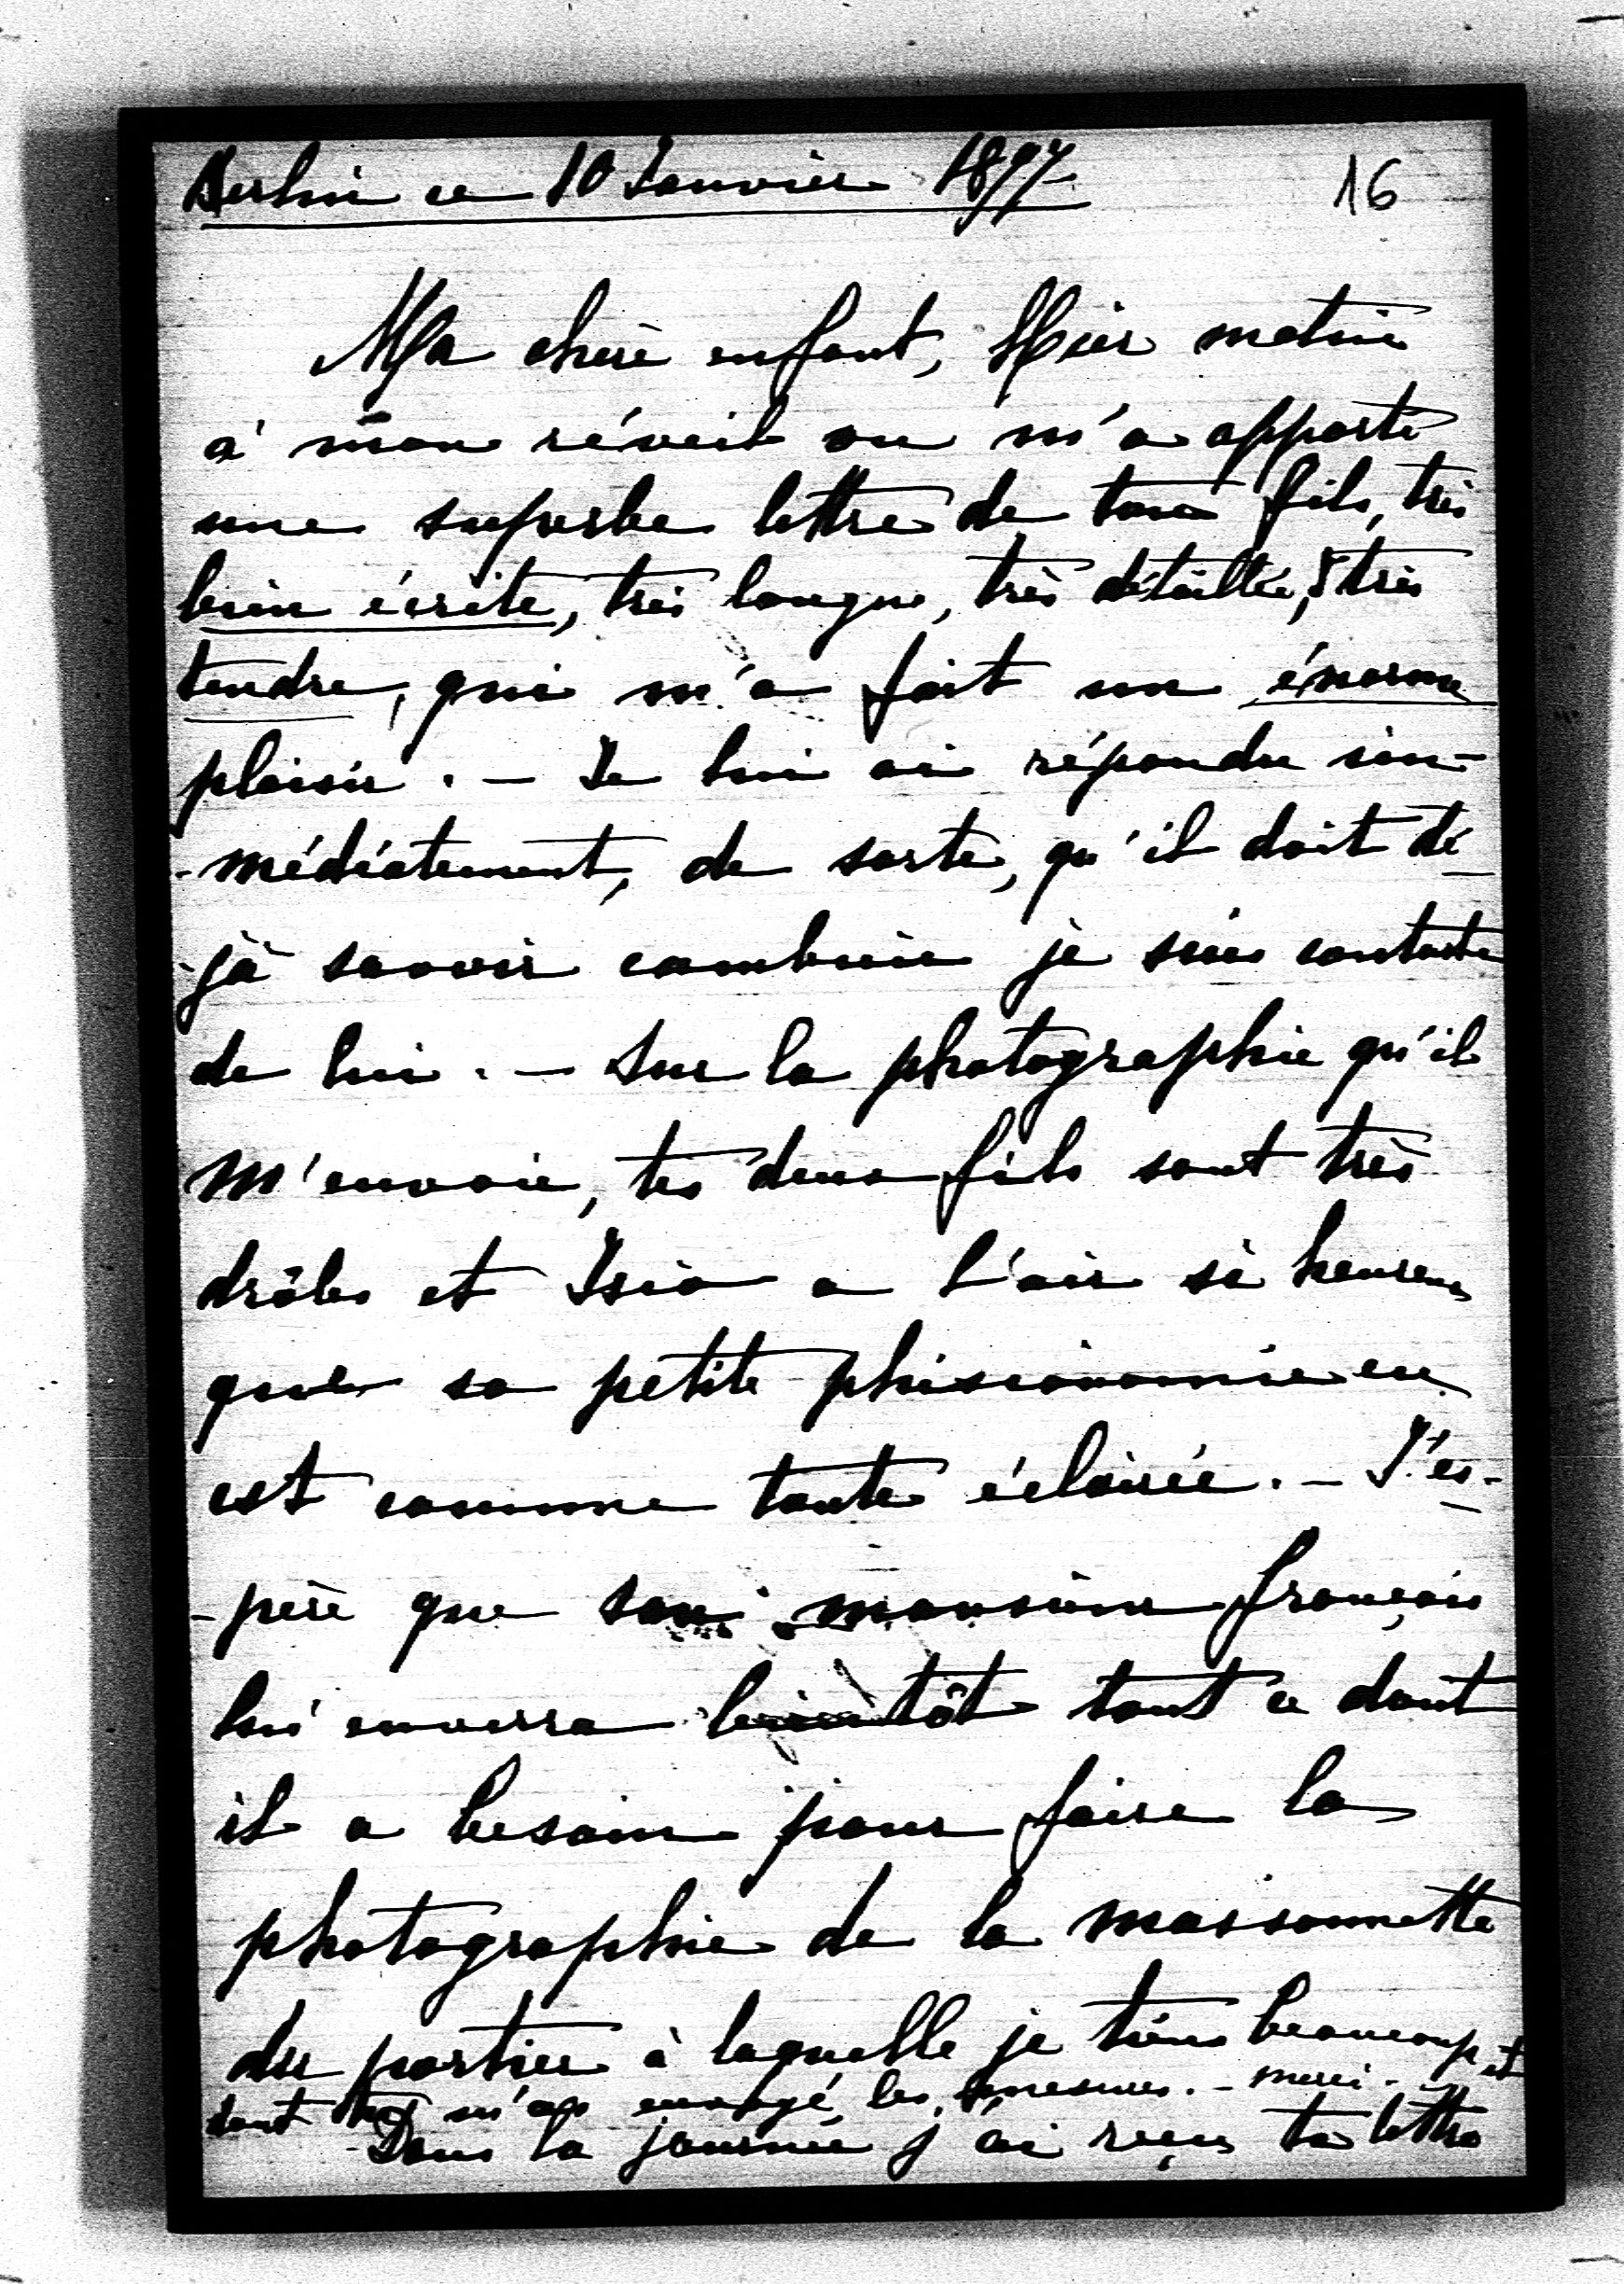 Berlin ce 10 Janvier 1897
16
Ma chère enfant, Hier matin
à mon réveil on m'a apporté
une superbe lettre de ton fils, très
bien écrite, très longue, très détaillée, & très
tendre, qui m'a fait un énorme
plaisir. — Je lui ai répondu im-
-médiatement, de sorte, qu'il doit dé-
-jà savoir combien je suis contente
de lui. — Sur la photographie qu'il
m'envoie, tes deux fils sont très
drôles et Isia a l'air si heureux
que sa petite phisionomie en
est comme toute éclairée. — J'es-
-père que son monsieur français
lui enverra bientôt tout ce dont
il a besoin pour faire la
photographie de la maisonnette
du portier à laquelle je tiens beaucoup et
dont tu m'as envoyé les mesures. — merci. —
Dans la journée j'ai reçu ta lettre